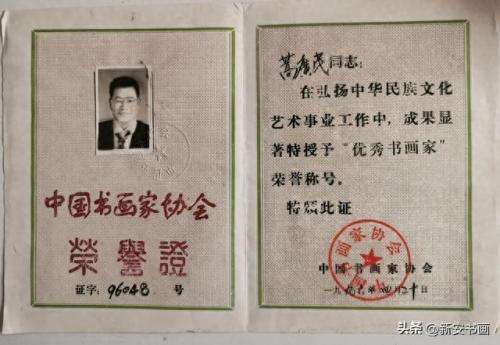 中国书画家协会
榮譽證
证字: 96048 号
同志:
在弘扬中华民族文化
艺术事业工作中，成果显
著特授予“优秀书画家”
荣誉称号。
特颁此证
画家协会
中国书画家协会
一九九 年 月 十日
头条 @新安书画